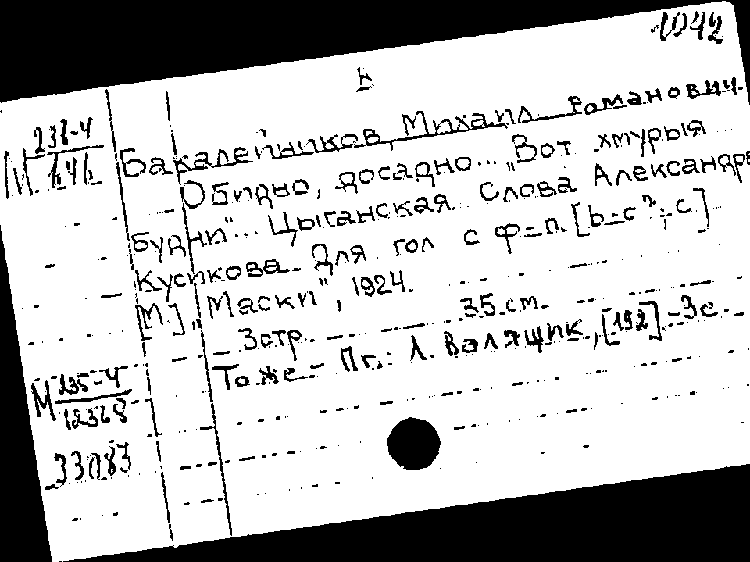 1042
Б
М 238-4
Бакалейников, Михаил Романович.
Обидно, досадно... "Вот хмурыя
будни"... Цыганская. Слова Александра
Кусикова. Для гол с ф=п.
М.] "Маски", 1924.
3 стр. 35 см.
То же.- Пг.: А. Волящик, [192] -3с
М 235-4
12368
33083